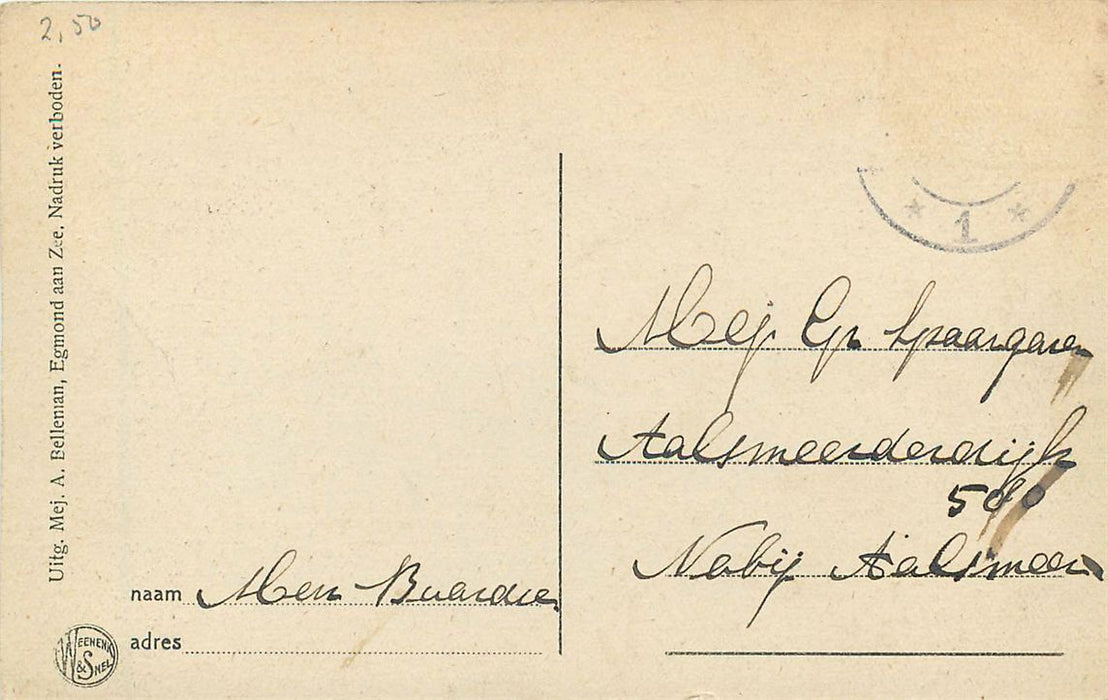 2,50
Uitg. Mej. A. Belleman, Egmond aan Zee. Nadruk verboden.
1
Mej Spaargaren
Aalsmeerderdijk
500
Nabij Aalsmeer
naam
adres
WEENENK & SNEL